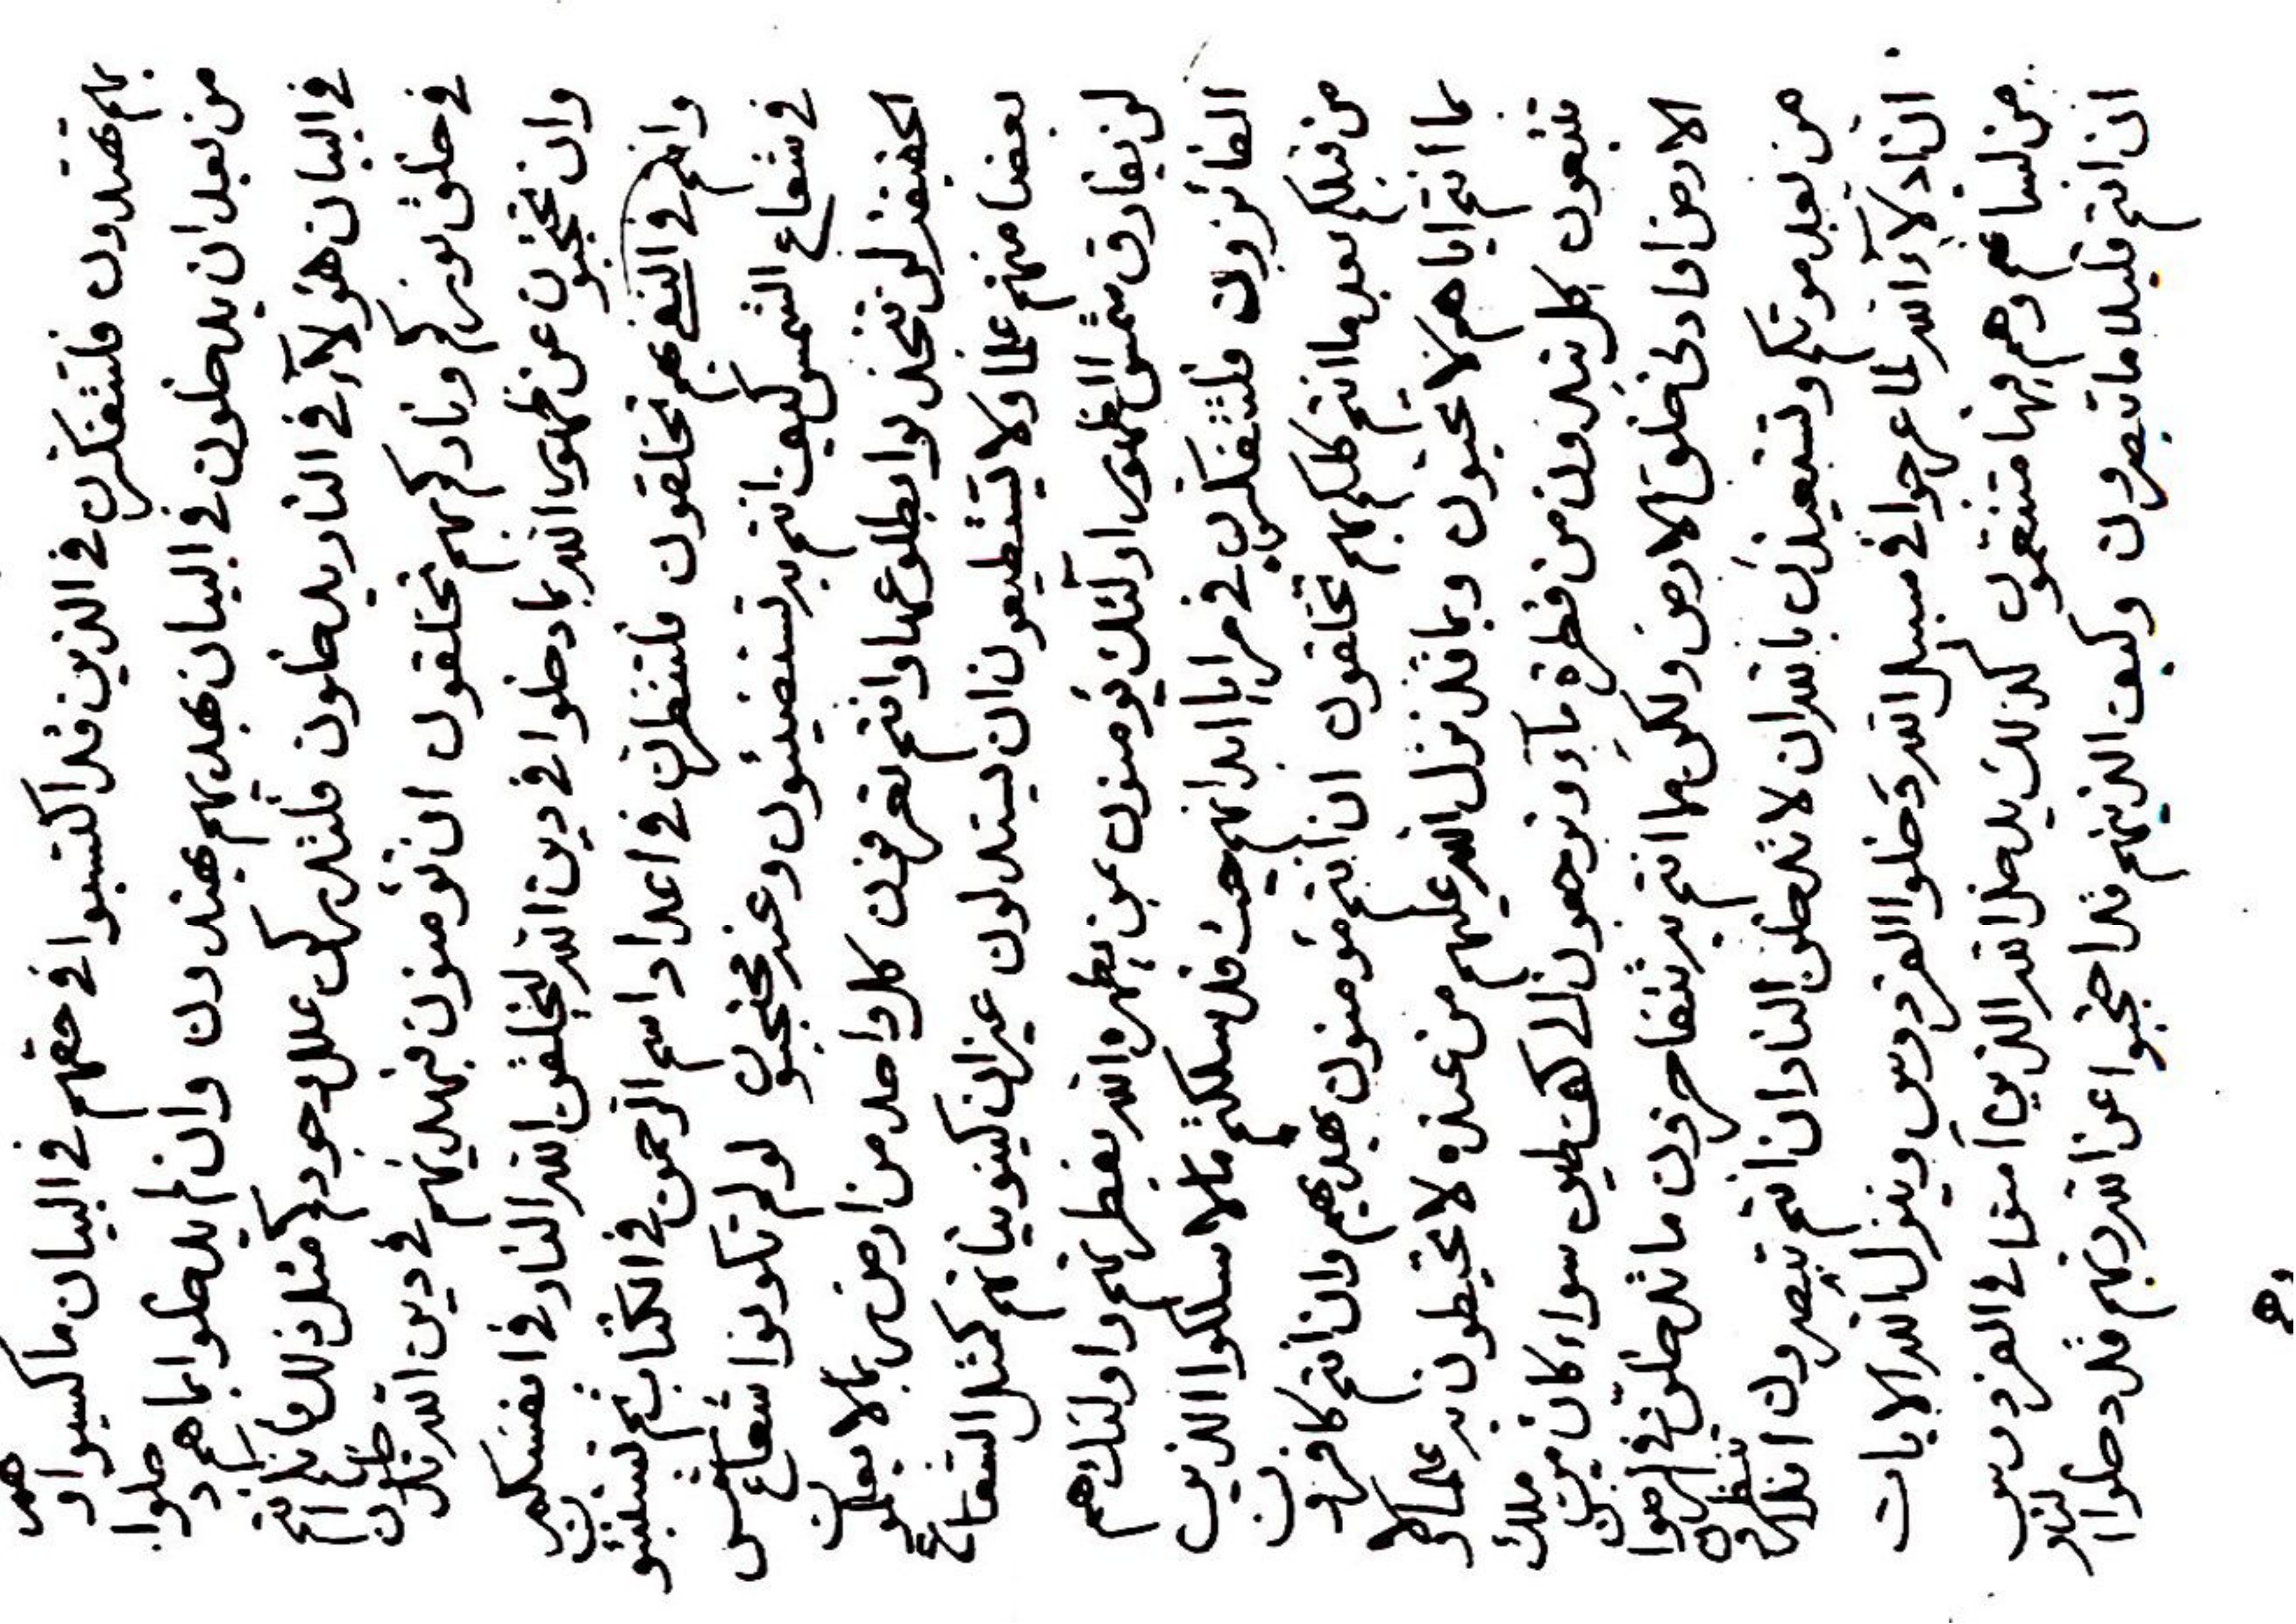 بهم تهتدون فلتتفكرن في الذين قد اكتسبوا في حقهم في البيان ما كسبوا و هم
من بعد ان يدخلون في البيان بهديهم يهتدون وان لم يدخلوا بما هم دخلوا
في البيان هؤلاء في النار يدخلون فلتدركن علل وجودكم مثل ذلك فانكم انتم
في خلق نوركم وناركم بهم تخلقون ان تؤمنون فبهديهم في دين الله تدخلون
وان تحتجبون عن ظهور الله بما دخلوا في دين الله ليخلقن الله النار في انفسكم
وانتم في النفي بهم تخلقون فلتنظرن في اعداد اسم الرحمن في الكتاب ثم تستنبئون
في شعاع الشمس كيف انتم به تستضيئون وعنه محتجبون لو لم تكونوا شعاع شمس
لن تتخذوا بطلوعها وانتم تعرفون كل واحد من ارض بما لا يعلمون
بعضا منهم علما ولا يستطيعون ان يستدلون غير ان كينونياتهم كمثل الشعاع
لن يفارق شمس الظهور اولئك يؤمنون بمن يظهره الله بفطرتهم واولئك هم
الفائزون فلتتفكرن في مرايا ابدانهم حيث قد سلكتم ما لا سلكوا الذين
من قبلكم بعد ما انتم كلكم بهم تخلقون ان انتم مؤمنون بهديهم وان انتم كافرون
بما انتم اياهم لا تحبون وبما قد نزل الله عليهم من عنده لا تحيطون به علما ولا
تتبعون كل يبدؤن من قطرة ماء وترجعون الى كف طين سواء كان من ملك
الارض او ادنى خلق الارض ولكن ما انتم به تتفاخرون ما قد خلق في
من بعد موتكم ولتستعيذن بالله ان لا تدخلن النار ان انتم تبصرون
ان ادلاء الله لما عرجوا في سبيل الله دخلوا الفردوس وينزل الله الايات
من لسانهم وهم فيها متنعمون كذلك يدخل الله الذين آمنوا في الفردوس
ان انتم قليلا ما تبصرون وكيف الذينهم قد احتجبوا عن الله ربهم قد دخلوا